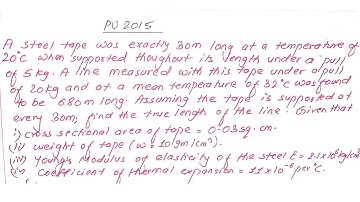 PU 2015
A steel tape was exactly 30m long at a temperature of
20°C when supported thoughout its length under a pull
of 5kg. A line measured with this tape under a pull
of 20kg and at a mean temperature of 32°C was found
to be 680m long. Assuming the tape is supported at
every 30m, find the true length of the line. Given that
i) cross sectional area of tape = 0.03sq.cm.
ii) weight of tape (w = 10gm/cm³).
iii) Young's Modulus of elasticity of the steel E = 2.1×10⁶kg/cm²
iv) Coefficient of thermal expansion = 11×10⁻⁶ per°C.